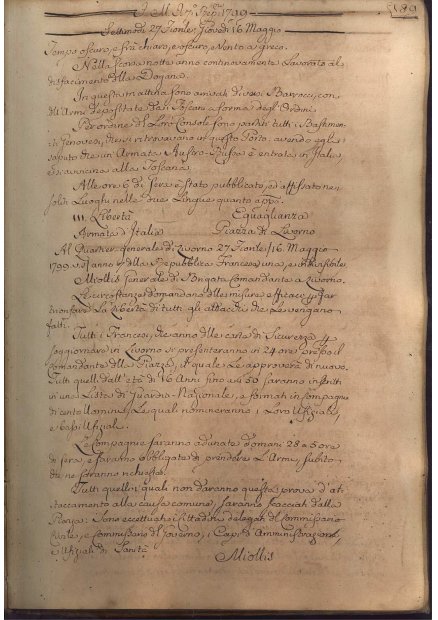 189
A. VII. Rep. 1799
Settimodi, 27 Fiorile, Giovedi 16 Maggio
Tempo oscuro, e fra chiaro, e oscuro, e Vento a greco.
Nella scorsa notte anno continovamente Lavorato al
disfacimento della Dogana.
In questa mattina sono arrivati diversi Barrocci, con
dell'Armi depositate dai Toscani a forma degl'Ordini.
Per ordine del Loro Console sono partiti tutti i Bastimen-
ti Genovesi, che si ritrovavano in questo Porto. avendo egli
saputo che un Armata Austro-Russa è entrata in Italia,
e s'avvicina alla Toscana.
Alle ore 6 di sera è stato pubblicato, ed affissato nei
soliti Luoghi nelle due Lingue quanto app.
Libertà Eguaglianza
Armata d'Italia Piazza di Livorno
Al Quartier generale di Livorno 27 Fiorile, 16. Maggio
1799 anno 7 della Repubblica Francese una, e indivisibile
Miollis Generale di Brigata Comandante a Livorno.
Le circostanze domandano delle misure efficaci p. far
trionfare la Libertà di tutti gli attacchi che Le vengano
fatti.
Tutti i Francesi, che anno delle carte di Sicurezza p.
soggiornare in Livorno si presenteranno in 24 ore presso il
Comandante della Piazza, il quale Le approverà di nuovo.
Tutti quelli dall'età di 16 Anni fino ai 50 saranno inscritti
in una Lista di Guardia-Nazionale, e formati in Compagnie
di cento Uomini, Le quali nomineranno i Loro Ufiziali,
e bassi Ufiziali.
Le Compagnie saranno adunate domani 28 a 5 ore
di sera, e saranno obbligate di prendere L'Armi, subito
che ne saranno richieste.
Tutti quelli i quali non daranno questa prova d'at-
taccamento alla causa comune, saranno scacciati dalla
Piazza: Sono eccettuati i Cittadini delegati del Commissario
Civile, e Commissario del Governo, i Capi d'Amministrazione,
e Ufiziali di Sanità
Miollis